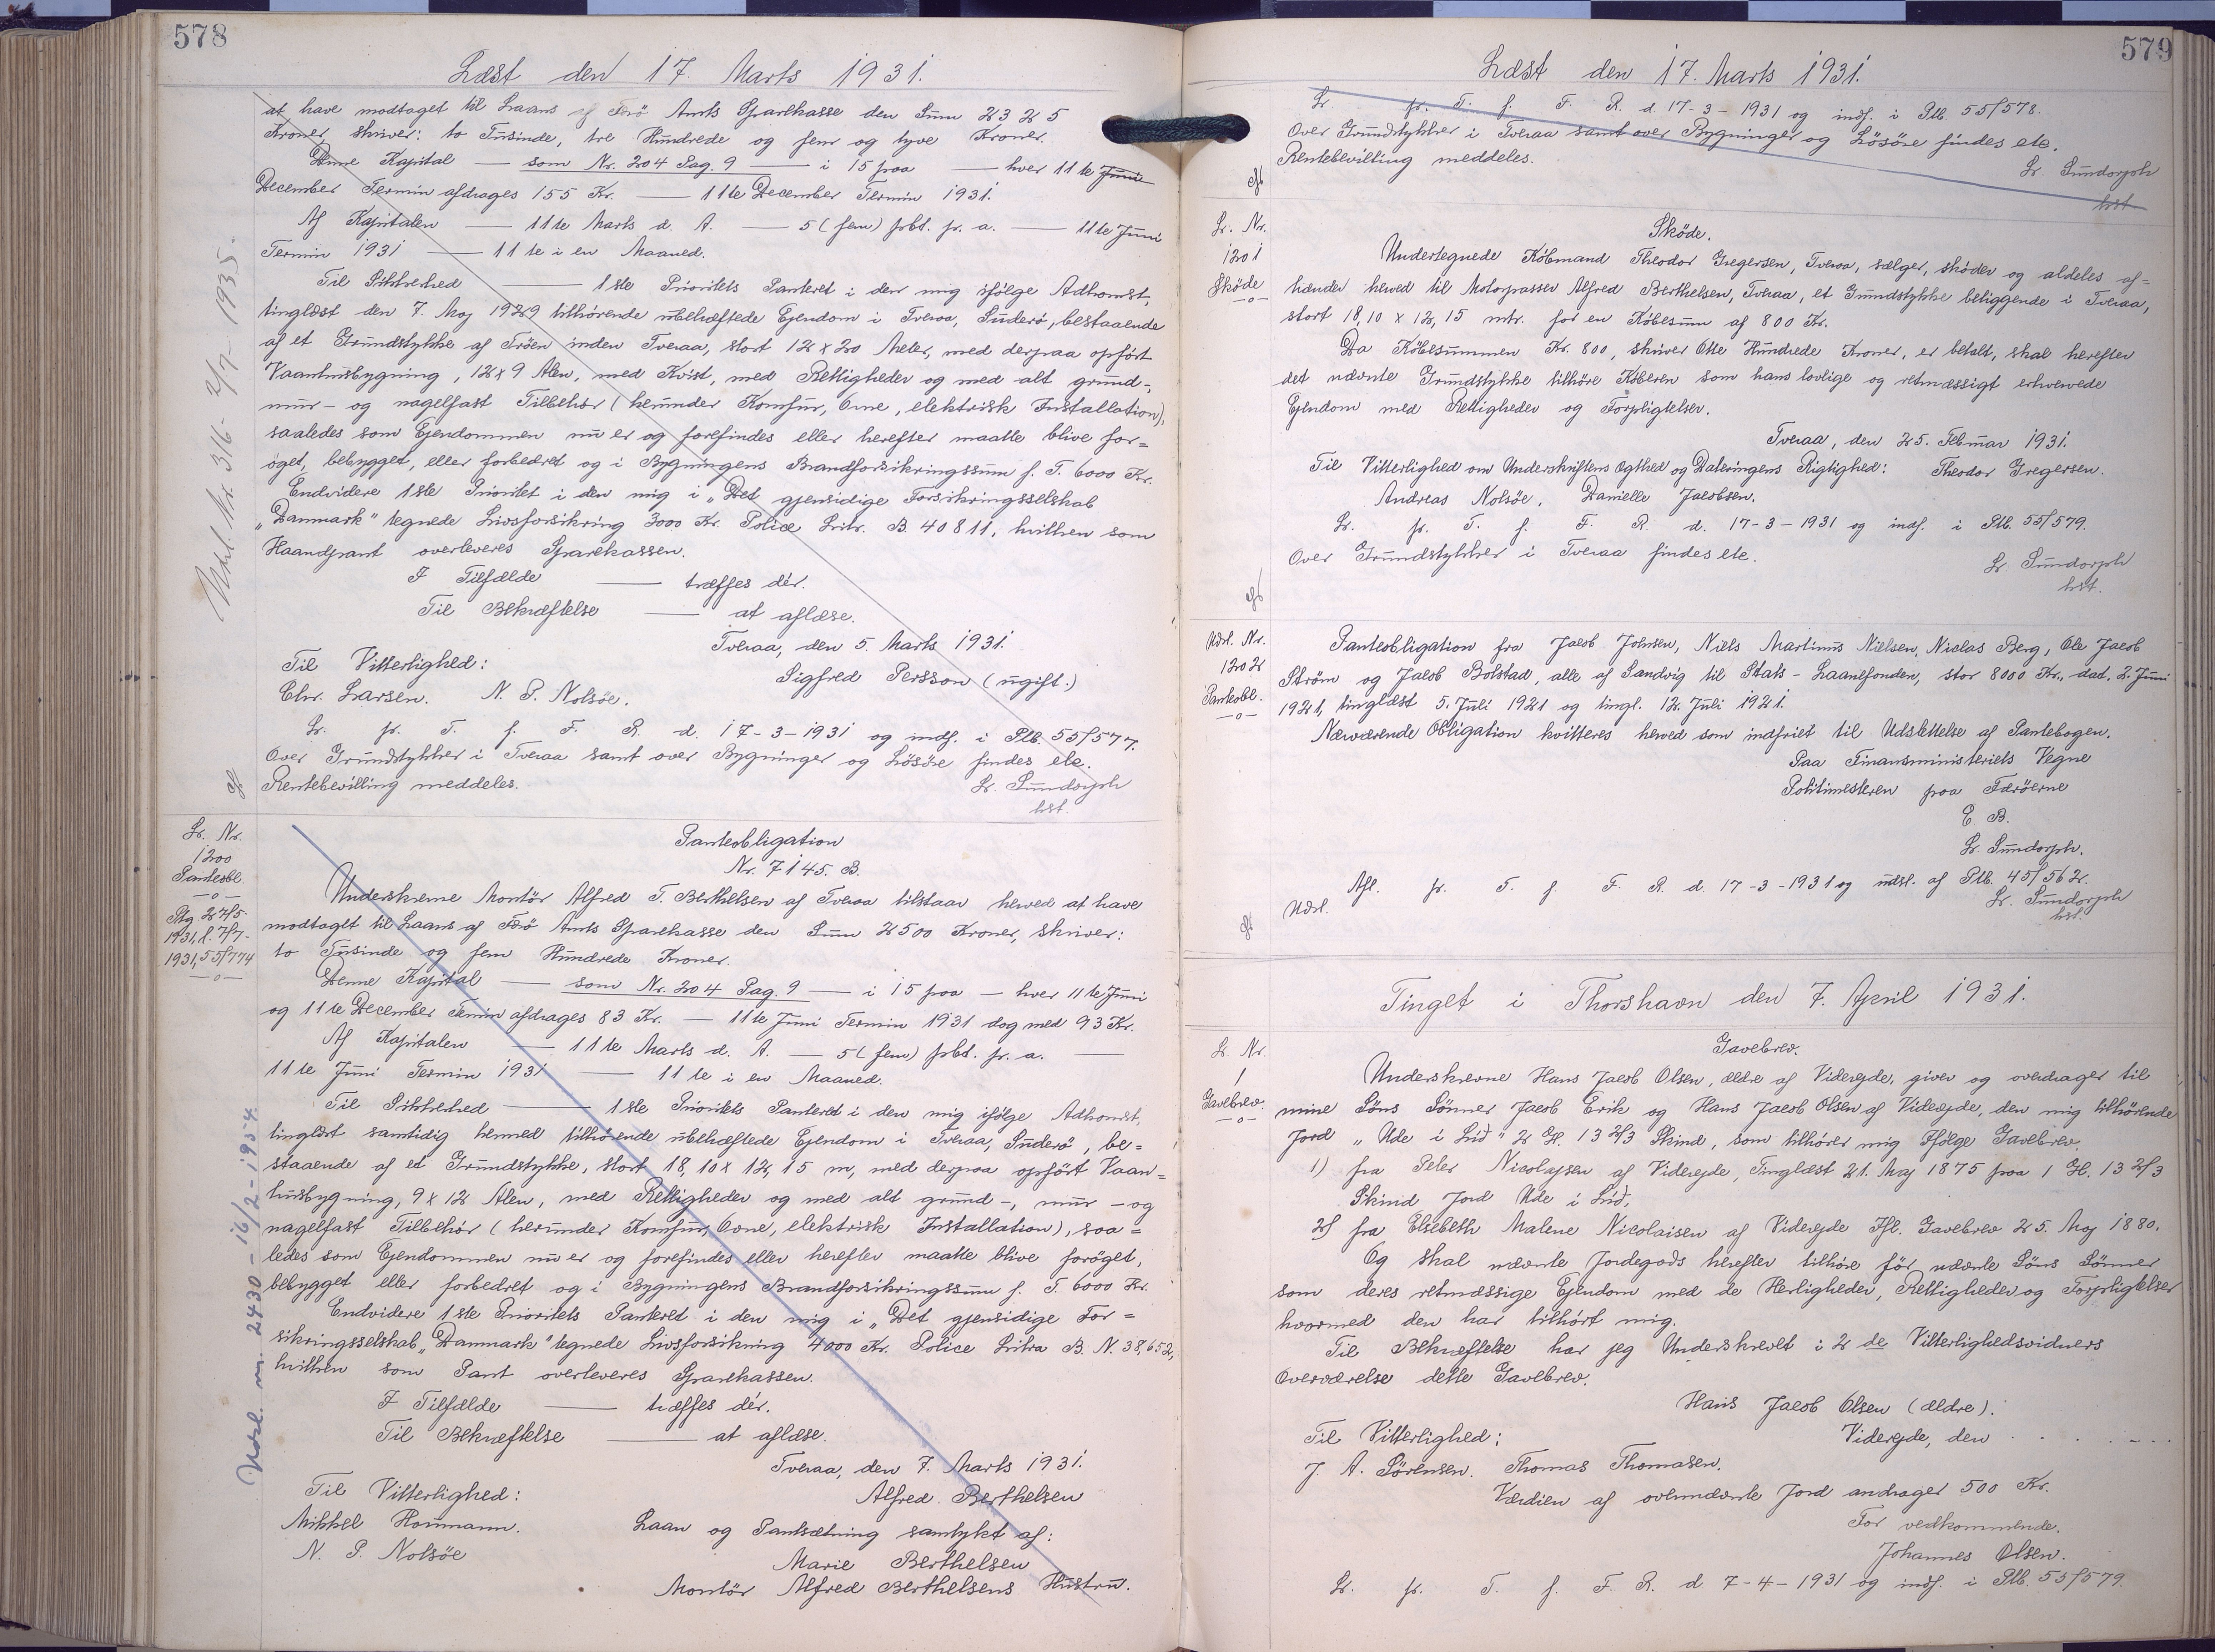 578
Læst den 17. Marts 1931.
at have modtaget til Laans af Færö Amts Sparekasse den Sum 2325
Kroner, skriver: to Tusinde, tre Hundrede og fem og tyve Kroner.
Denne Kapital — som Nr. 204 Pag. 9 — i 15 paa — hver 11te Juni
December Termin afdrages 155 Kr. — 11te December Termin 1931.
Af Kapitalen — 11te Marts d. A. — 5 (fem) pCt. pr. a. — 11te Juni
Termin 1931 — 11te i en Maaned.
Til Sikkerhed — 1ste Prioritets Panteret i den mig ifølge Adkomst,
tinglæst den 7. Maj 1929 tilhörende ubehæftede Ejendom i Tveraa, Suderö, bestaaende
af et Grundstykke af Tröen inden Tveraa, stort 12 x 20 Meter, med derpaa opfört
Vaaningsbygning, 12 x 9 Alen, med Kvist, med Rettigheder og med alt grund-,
mur- og nagelfast Tilbehör (herunder Komfur, Ovne, elektrisk Installation),
saaledes som Ejendommen nu er og forefindes eller herefter maatte blive for=
öget, bebygget, eller forbedret og i Bygningens Brandforsikringssum f. T. 6000 Kr.
Endvidere 1ste Prioritet i den mig i "Det gjensidige Forsikringsselskab
"Danmark" tegnede Livsforsikring 3000 Kr. Police Litr. B. 40811, hvilken som
Haandpant overleveres Sparekassen.
I Tilfælde — træffes dér.
Til Bekræftelse — at aflæse.
Tveraa, den 5. Marts 1931.
Til Vitterlighed: Sigfred Persson (ugift.)
Chr. Larsen. N. P. Nolsöe.
Lr. pr. T. f. F. R. d. 17-3-1931 og indf. i Ptb. 55/577.
Over Grundstykker i Tveraa samt over Bygninger og Lösöre findes etc.
Rentebevilling meddeles. Lr. Sundorph
kst.
Udsl. Nr. 316- 2/7-1935.
Lr. Nr.
1200
Panteobl.
—o—
Ptg 27/5-
1931, l. 7/7-
1931, 55/774
—o—
Udsl. nr. 2430 - 16/2-1954.
Panteobligation
Nr. 7145. B.
Underskrevne Montör Alfred T. Berthelsen af Tveraa tilstaar herved at have
modtaget til Laans af Færö Amts Sparekasse den Sum 2500 Kroner, skriver:
to Tusinde og fem Hundrede Kroner.
Denne Kapital — som Nr. 204 Pag. 9 — i 15 paa — hver 11te Juni
og 11te December Termin afdrages 83 Kr. — 11te Juni Termin 1931 dog med 93 Kr.
Af Kapitalen — 11te Marts d. A. — 5 (fem) pCt. pr. a. —
11te Juni Termin 1931 — 11te i en Maaned.
Til Sikkerhed — 1ste Prioritets Panteret i den mig ifølge Adkomst,
tinglæst samtidig hermed tilhörende ubehæftede Ejendom i Tveraa, Suderö, be=
staaende af et Grundstykke, stort 18,10 x 12,15 m, med derpaa opfört Vaan=
husbygning, 9 x 12 Alen, med Rettigheder og med alt grund-, mur- og
nagelfast Tilbehör (herunder Komfur, Ovne, elektrisk Installation), saa=
ledes som Ejendommen nu er og forefindes eller herefter maatte blive foröget,
bebygget eller forbedret og i Bygningens Brandforsikringssum f. T. 6000 Kr.
Endvidere 1ste Prioritets Panteret i den mig i "Det gjensidige For=
sikringsselskab "Danmark" tegnede Livsforsikring 4000 Kr. Police Litra B. N. 38,652,
hvilken som Pant overleveres Sparekassen.
I Tilfælde — træffes dér.
Til Bekræftelse — at aflæse.
Tveraa, den 7. Marts 1931.
Til Vitterlighed: Alfred Berthelsen
Mikkel Homann. Laan og Pantsætning samtykt af:
N. P. Nolsöe Marie Berthelsen
Montör Alfred Berthelsens Hustru.
579
Læst den 17. Marts 1931.
Lr. pr. T. f. F. R. d. 17-3-1931 og indf. i Ptb. 55/578.
Over Grundstykker i Tveraa samt over Bygninger og Lösöre findes etc.
Rentebevilling meddeles. Lr. Sundorph
kst.
Lr. Nr.
1201
Sköde
—o—
Sköde.
Undertegnede Köbmand Theodor Gregersen, Tveraa, sælger, sköder og aldeles af=
hænder herved til Motorpasser Alfred Berthelsen, Tveraa, et Grundstykke beliggende i Tveraa,
stort 18,10 x 12,15 mtr. for en Köbesum af 800 Kr.
Da Köbesummen Kr. 800, skriver Otte Hundrede Kroner, er betalt, skal herefter
det nævnte Grundstykke tilhöre Köberen som hans lovlige og retmæssigt erhvervede
Ejendom med Rettigheder og Forpligtelser.
Tveraa, den 25. Februar 1931.
Til Vitterlighed om Underskriftens Ægthed og Dateringens Rigtighed: Theodor Gregersen.
Andreas Nolsöe. Danielle Jacobsen.
Lr. pr. T. f. F. R. d. 17-3-1931 og indf. i Ptb. 55/579.
Over Grundstykker i Tveraa findes etc.
Lr. Sundorph
kst.
Udsl. Nr.
1202
Panteobl.
—o—
Panteobligation fra Jacob Johnsen, Niels Martinus Nielsen, Niclas Berg, Ole Jacob
Ström og Jacob Bolstad, alle af Sandvig til Stats-Laanefonden, stor 8000 Kr., dat. 2. Juni
1921, tinglæst 5. Juli 1921 og tingl. 12. Juli 1921.
Nærværende Obligation kvitteres herved som indfriet til Udslettelse af Pantebogen.
Paa Finansministeriets Vegne
Politimesteren paa Færöerne
E. B.
Lr. Sundorph.
Afl. pr. T. f. F. R. d. 17-3-1931 og udsl. af Ptb. 45/562.
Udsl. Lr. Sundorph
kst.
Tinget i Thorshavn den 7. April 1931.
Lr. Nr.
1
Gavebrev.
—o—
Gavebrev.
Underskrevne Hans Jacob Olsen, ældre af Viderejde, giver og overdrager til
mine Söns Sönner Jacob Erik og Hans Jacob Olsen af Viderejde, den mig tilhörende
Jord "Ude i Lid" 2 G. 13 2/3 Skind, som tilhörer mig Ifølge Gavebrev.
1) fra Peter Nicolajsen af Viderejde, Tinglæst 21. Maj 1875 paa 1 G. 13 2/3
Skind Jord Ude i Lid,
2) fra Elsebeth Malene Nicolaisen af Viderejde Ifl. Gavebrev 25. Maj 1880.
Og skal nævnte Jordegods herefter tilhöre för nævnte Söns Sönner
som deres retmæssige Ejendom med de Herligheder, Rettigheder og Forpligtelser
hvormed den har tilhört mig.
Til Bekræftelse har jeg Underskrevet i 2 de Vitterlighedsvidners
Overværelse dette Gavebrev.
Hans Jacob Olsen (ældre).
Til Vitterlighed: Viderejde, den . . . . . .
J. A. Sörensen. Thomas Thomasen.
Værdien af ovennævnte Jord andrager 500 Kr.
For vedkommende.
Johannes Olsen.
Lr. pr. T. f. F. R. d. 7-4-1931 og indf. i Ptb. 55/579.